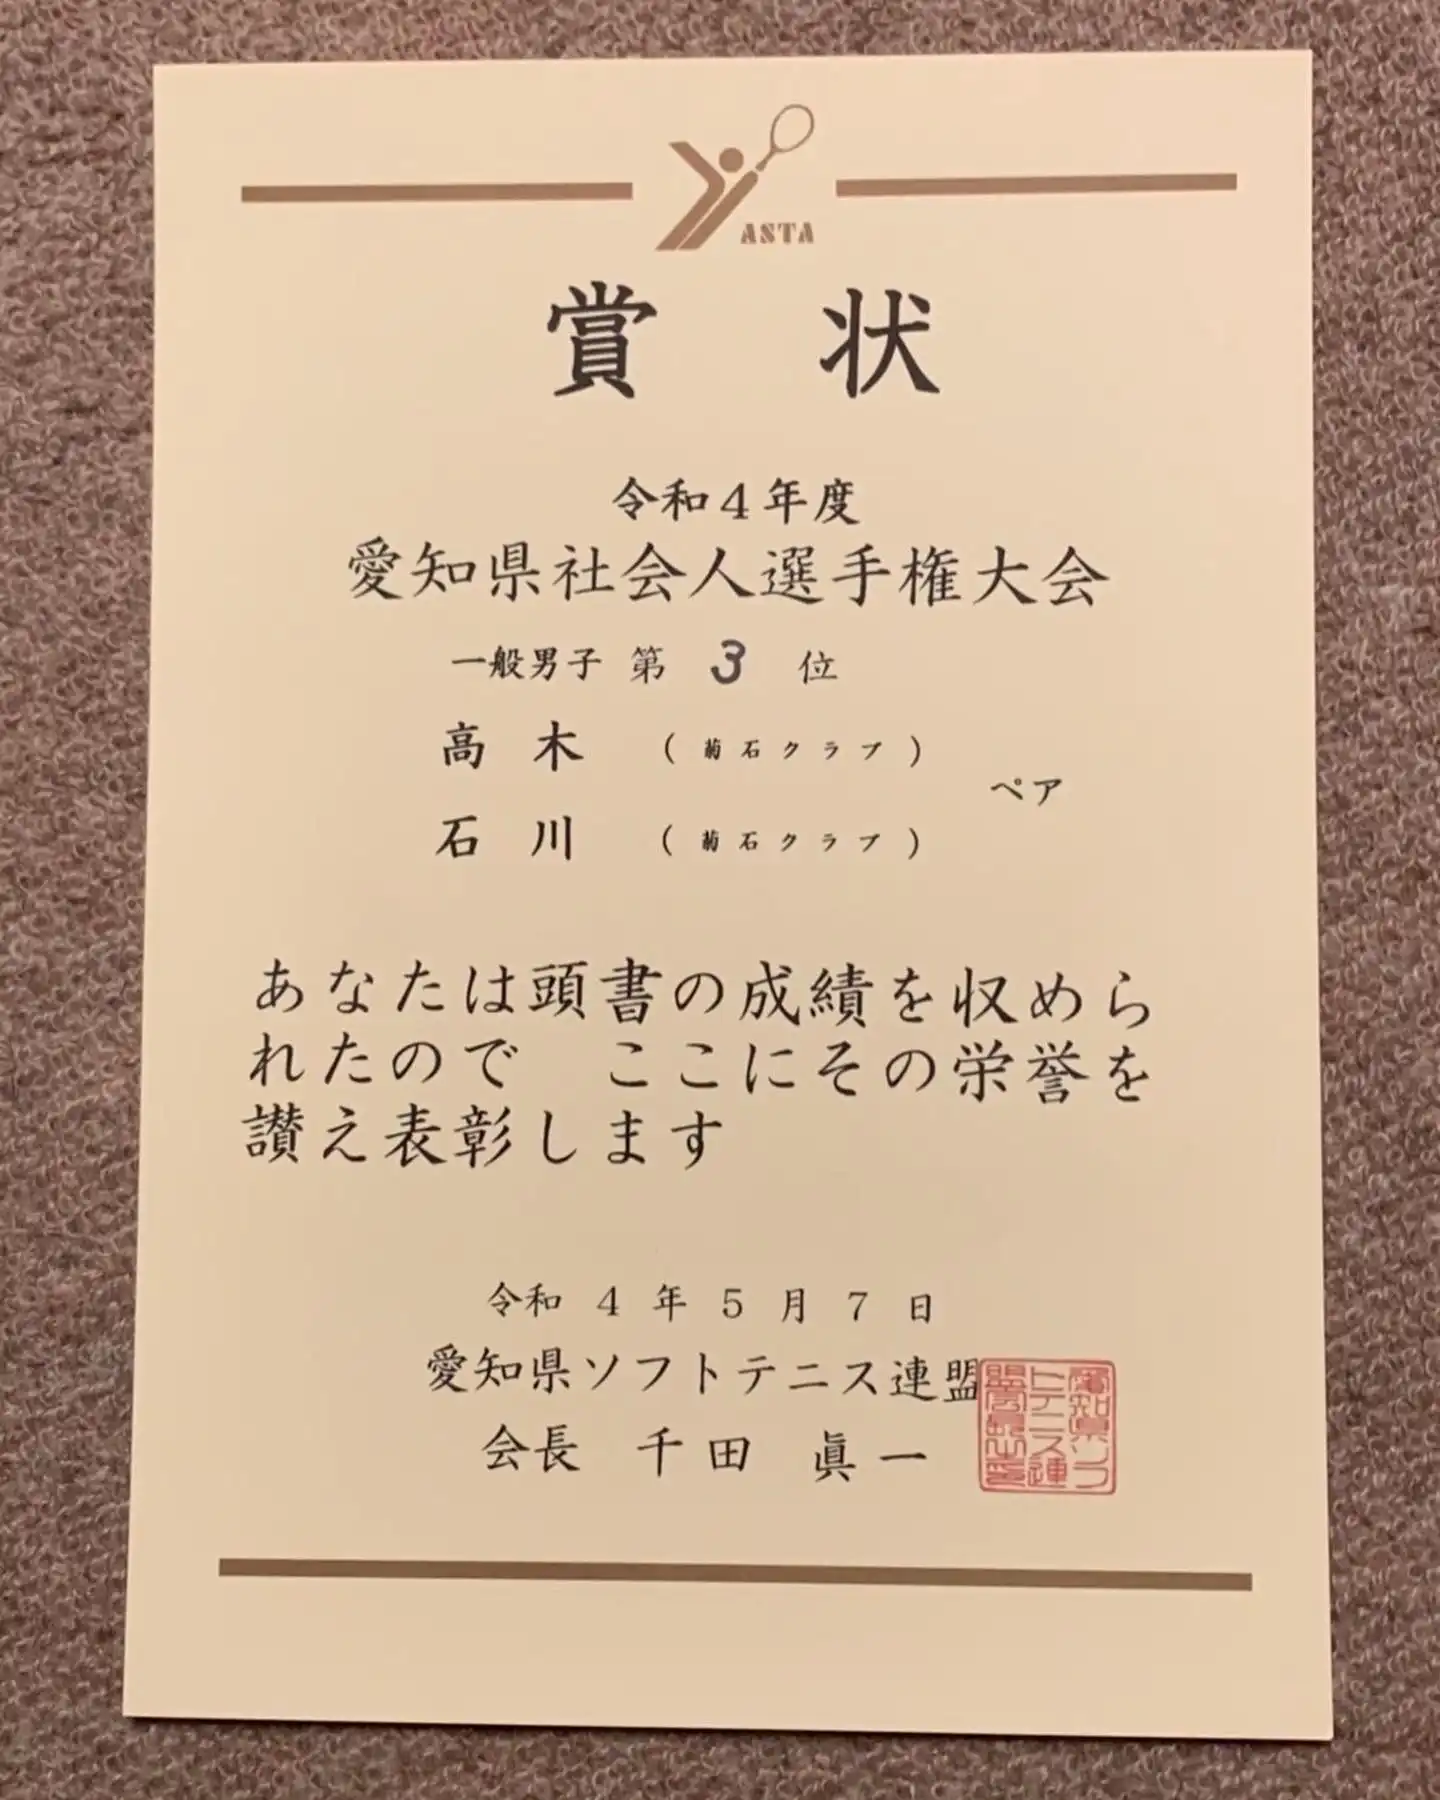 ASTA
賞状
令和4年度
愛知県社会人選手権大会
一般男子 第 3 位
高木 (菊石クラブ)
ペア
石川 (菊石クラブ)
あなたは頭書の成績を収めら
れたので ここにその栄誉を
讃え表彰します
令和 4 年 5 月 7 日
愛知県ソフトテニス連盟
会長 千田 眞一
愛知県ソフ
トテニス連
盟会長之印